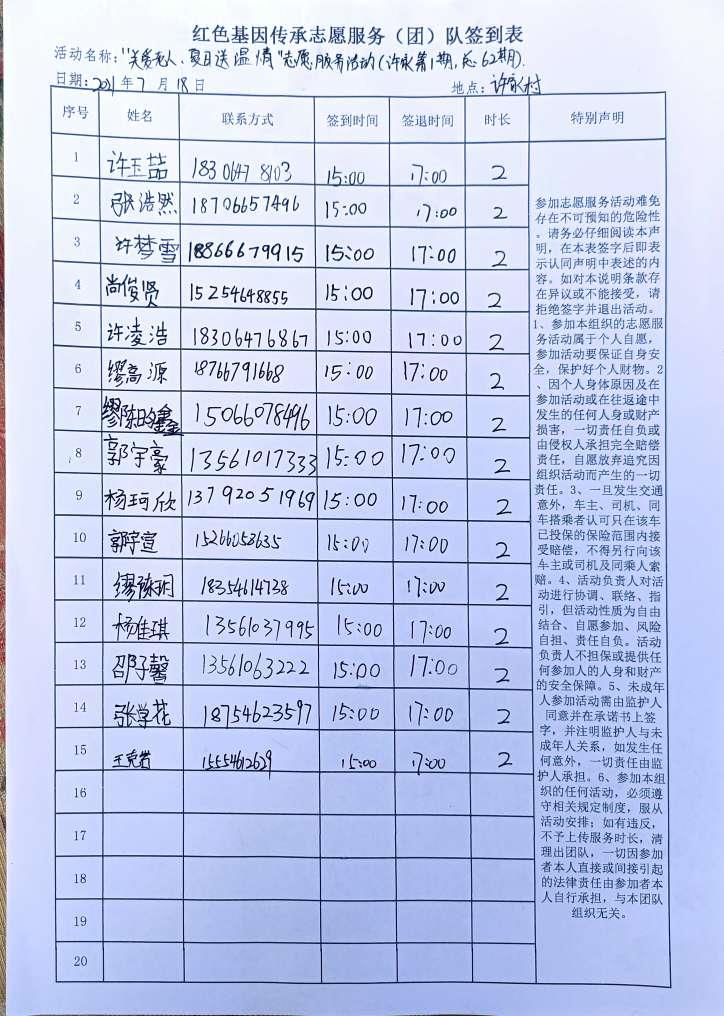 红色基因传承志愿服务（团）队签到表
活动名称：“关爱老人、夏日送温情”志愿服务活动（许家第1期，总62期）.
日期：2021年7月18日 地点：许家村
序号 姓名 联系方式 签到时间 签退时间 时长 特别声明
1 许玉喆 18306478103 15:00 17:00 2
2 张浩然 18706657496 15:00 17:00 2
3 许梦雪 18866679915 15:00 17:00 2
4 尚俊贤 15254648855 15:00 17:00 2
5 许凌浩 18306476867 15:00 17:00 2
6 缪高源 18766791668 15:00 17:00 2
7 15066078496 15:00 17:00 2
8 郭宇豪 13561017333 15:00 17:00 2
9 杨珂欣 13792051969 15:00 17:00 2
10 郭宇宣 15266053635 15:00 17:00 2
11 缪陈玥 18354614738 15:00 17:00 2
12 杨佳琪 13561037995 15:00 17:00 2
13 邵子馨 13561063222 15:00 17:00 2
14 张学花 18754623597 15:00 17:00 2
15 王克岩 15554612629 15:00 17:00 2
16
17
18
19
20
参加志愿服务活动难免
存在不可预知的危险性
。请务必仔细阅读本声
明，在本表签字后即表
示认同声明中表述的内
容。如对本说明条款存
在异议或不能接受，请
拒绝签字并退出活动。
1、参加本组织的志愿服
务活动属于个人自愿，
参加活动要保证自身安
全，保护好个人财物。2
、因个人身体原因及在
参加活动或在往返途中
发生的任何人身或财产
损害，一切责任自负或
由侵权人承担完全赔偿
责任，自愿放弃追究因
组织活动而产生的一切
责任。3、一旦发生交通
意外，车主、司机、同
车搭乘者认可只在该车
已投保的保险范围内接
受赔偿，不得另行向该
车主或司机及同乘人索
赔。4、活动负责人对活
动进行协调、联络、指
引，但活动性质为自由
结合、自愿参加、风险
自担、责任自负。活动
负责人不担保或提供任
何参加人的人身和财产
的安全保障。5、未成年
人参加活动需由监护人
同意并在承诺书上签
字，并注明监护人与未
成年人关系，如发生任
何意外，一切责任由监
护人承担。6、参加本组
织的任何活动，必须遵
守相关规定制度，服从
活动安排；如有违反，
不予上传服务时长，清
理出团队，一切因参加
者本人直接或间接引起
的法律责任由参加者本
人自行承担，与本团队
组织无关。